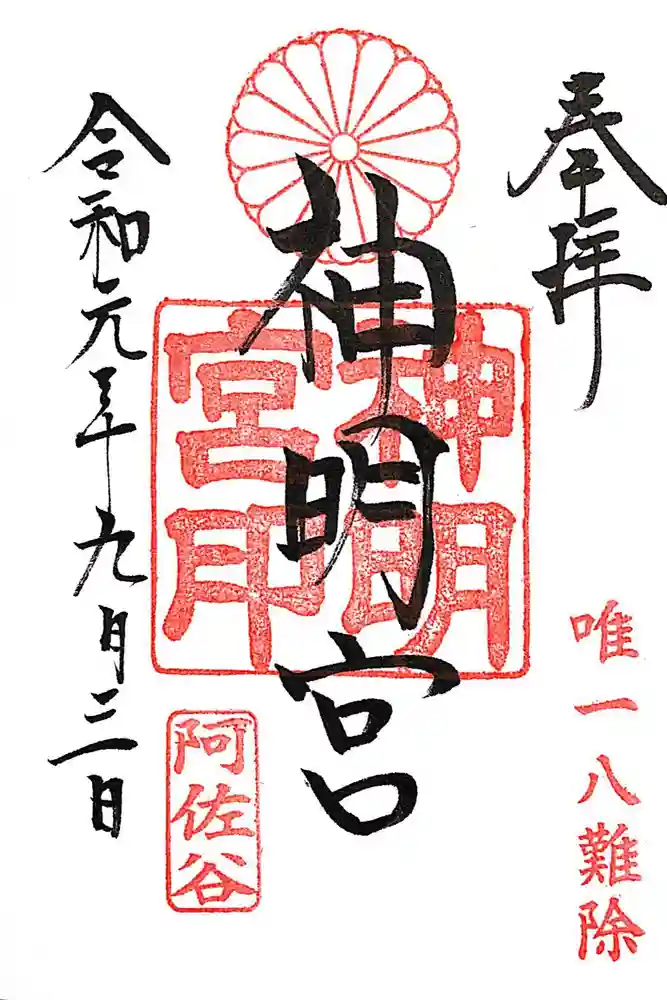 奉拝
唯一八難除
神明宮
神明
宮印
阿佐谷
令和元年九月三日